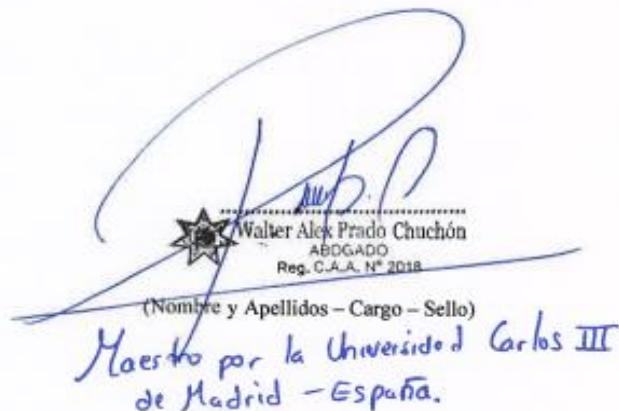 Walter Alex Prado Chuchón
ABOGADO
Reg. C.A.A. N° 2018
(Nombre y Apellidos – Cargo – Sello)
Maestro por la Universidad Carlos III
de Madrid – España.